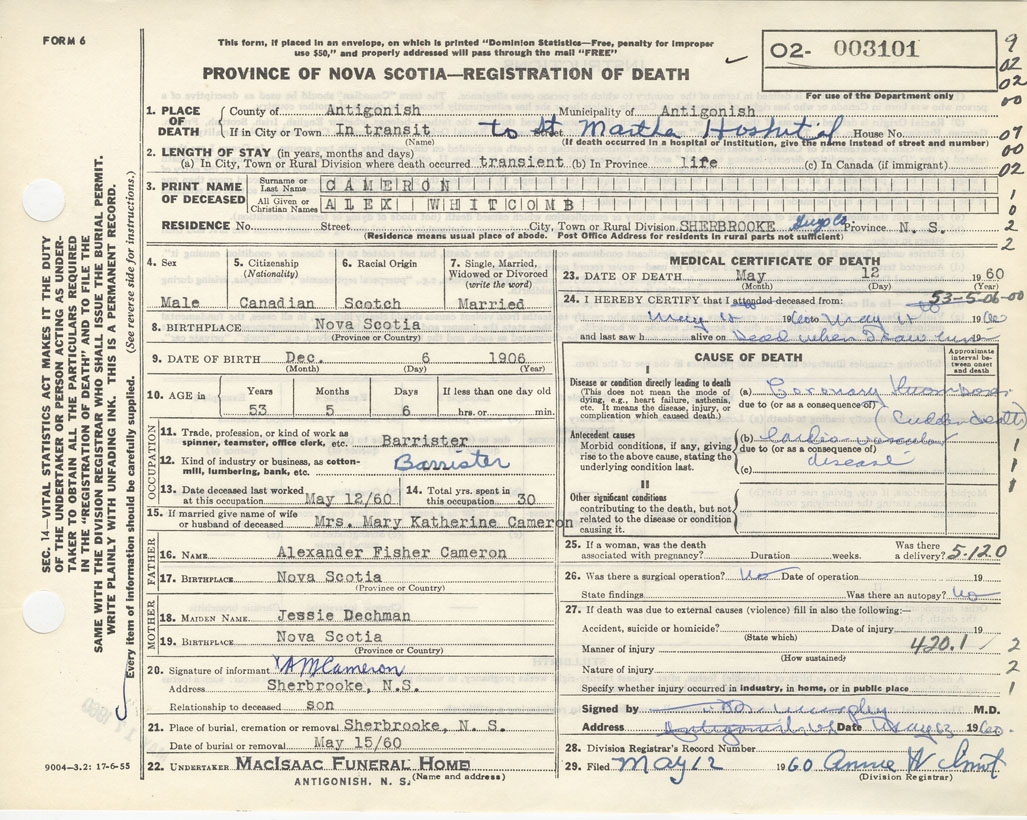 FORM 6
This form, if placed in an envelope, on which is printed "Dominion Statistics—Free, penalty for improper
use $50," and properly addressed will pass through the mail "FREE"
02- 003101
For use of the Department only
PROVINCE OF NOVA SCOTIA—REGISTRATION OF DEATH
9
02
02
00
07
00
02
1
0
2
2
1. PLACE OF DEATH
County of Antigonish Municipality of Antigonish
If in City or Town In transit to St Street Martha Hospital House No.
(Name) (If death occurred in a hospital or institution, give the name instead of street and number)
2. LENGTH OF STAY (in years, months and days)
(a) In City, Town or Rural Division where death occurred transient (b) In Province life (c) In Canada (if immigrant)
3. PRINT NAME OF DECEASED
Surname or Last Name CAMERON
All Given or Christian Names ALEX WHITCOMB
RESIDENCE No. Street City, Town or Rural Division SHERBROOKE Guys Co Province N. S.
(Residence means usual place of abode. Post Office Address for residents in rural parts not sufficient)
4. Sex
Male
5. Citizenship (Nationality)
Canadian
6. Racial Origin
Scotch
7. Single, Married, Widowed or Divorced (write the word)
Married
8. BIRTHPLACE Nova Scotia
(Province or Country)
9. DATE OF BIRTH Dec. 6 1906
(Month) (Day) (Year)
10. AGE in
Years Months Days If less than one day old
53 5 6 hrs. or min.
OCCUPATION
11. Trade, profession, or kind of work as spinner, teamster, office clerk, etc. Barrister
12. Kind of industry or business, as cotton-mill, lumbering, bank, etc. Barrister
13. Date deceased last worked at this occupation May 12/60
14. Total yrs. spent in this occupation 30
15. If married give name of wife or husband of deceased Mrs. Mary Katherine Cameron
FATHER
16. NAME Alexander Fisher Cameron
17. BIRTHPLACE Nova Scotia
(Province or Country)
MOTHER
18. MAIDEN NAME Jessie Dechman
19. BIRTHPLACE Nova Scotia
(Province or Country)
20. Signature of informant AM Cameron
Address Sherbrooke, N.S.
Relationship to deceased son
21. Place of burial, cremation or removal Sherbrooke, N. S.
Date of burial or removal May 15/60
22. UNDERTAKER MACISAAC FUNERAL HOME
ANTIGONISH, N. S. (Name and address)
MEDICAL CERTIFICATE OF DEATH
23. DATE OF DEATH May 12 1960
(Month) (Day) (Year)
53-5-06-00
24. I HEREBY CERTIFY that I attended deceased from:
May 12 1960 to May 12 1960
and last saw h alive on Dead when I saw him 19
CAUSE OF DEATH
Approximate interval between onset and death
I
Disease or condition directly leading to death
(This does not mean the mode of dying, e.g., heart failure, asthenia, etc. It means the disease, injury, or complication which caused death.)
(a) Coronary Thrombosis
due to (or as a consequence of)
(Sudden death)
Antecedent causes
Morbid conditions, if any, giving rise to the above cause, stating the underlying condition last.
(b) Cardio vascular
due to (or as a consequence of)
disease
(c)
1
1
1
II
Other significant conditions
contributing to the death, but not related to the disease or condition causing it.
25. If a woman, was the death associated with pregnancy? Duration weeks. Was there a delivery? 5-120
26. Was there a surgical operation? No Date of operation 19
State findings Was there an autopsy? No
27. If death was due to external causes (violence) fill in also the following:—
Accident, suicide or homicide? Date of injury 19
(State which)
Manner of injury 420.1 / 2
(How sustained)
Nature of injury 2
Specify whether injury occurred in industry, in home, or in public place 1
Signed by Murphy M.D.
Address Antigonish NS Date May 13 1960.
28. Division Registrar's Record Number
29. Filed May 12 1960 Annie W Smit
(Division Registrar)
SEC. 14—VITAL STATISTICS ACT MAKES IT THE DUTY
OF THE UNDERTAKER OR PERSON ACTING AS UNDER-
TAKER TO OBTAIN ALL THE PARTICULARS REQUIRED
IN THE "REGISTRATION OF DEATH" AND TO FILE THE
SAME WITH THE DIVISION REGISTRAR WHO SHALL ISSUE THE BURIAL PERMIT.
WRITE PLAINLY WITH UNFADING INK. THIS IS A PERMANENT RECORD.
Every item of information should be carefully supplied. (See reverse side for instructions.)
9004-3.2: 17-6-55